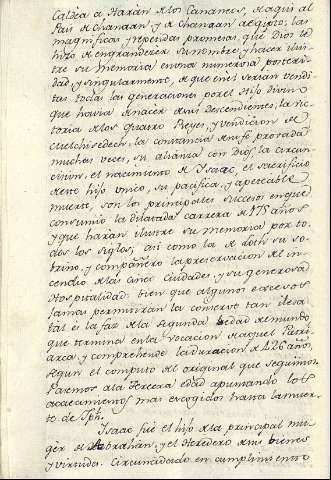 Caldea a Haran de los Cananeos, de aqui al
Pais de Changan, y de Changan a Egipto, las
magnificas y repetidas promesas que Dios le
hizo de engrandecer su nombre, y hacer ilus
tre su memoria en una numerosa posteri
dad, y singularmente, de que en el serian vendi
tas todas las generaciones por el Hijo divino
que havia de nacer de sus descendientes; la vic
toria de los quatro Reyes, y vendicion de
Melchisedech, la constancia de su fe provada
muchas veces, su alianza con Dios, la circun
cision, el nacimiento de Isaac, el sacrificio
de este hijo unico, su pacifica, y apetecible
muerte, son los principales sucesos en que
consumio la dilatada carrera de 175 años
y que haran ilustre su memoria por to
dos los siglos, asi como la de Loth su so
brino, y compañero la preservacion del in
cendio de las cinco Ciudades, y su generosa
Hospitalidad: bien que algunos excesos
jamas permitiran la conserve tan
tal es la faz de la segunda edad del mundo
que termina en la vocacion de aquel Patri
arca, y comprehende la duracion de 426 años,
segun el computo del original que seguimos.
Pasemos a la tercera edad apuntando los
acaecimientos mas escogidos hasta la muer
te de Jph.
Isaac fue el hijo de la principal mu
ger de Abrahan, y el Heredero de sus bienes
y virtudes. Circuncidado en cumplimiento